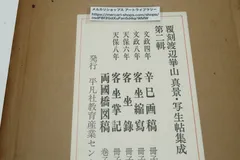 メルカリショップス アートライブラリー
覆刻渡辺崋山真景・写生帖集成
第二輯
文政四年 辛巳画稿
文政八年 客坐縮寫
天保六年 客坐録
天保八年 客坐掌記
両國橋図稿
発行 平凡社教育産業セン